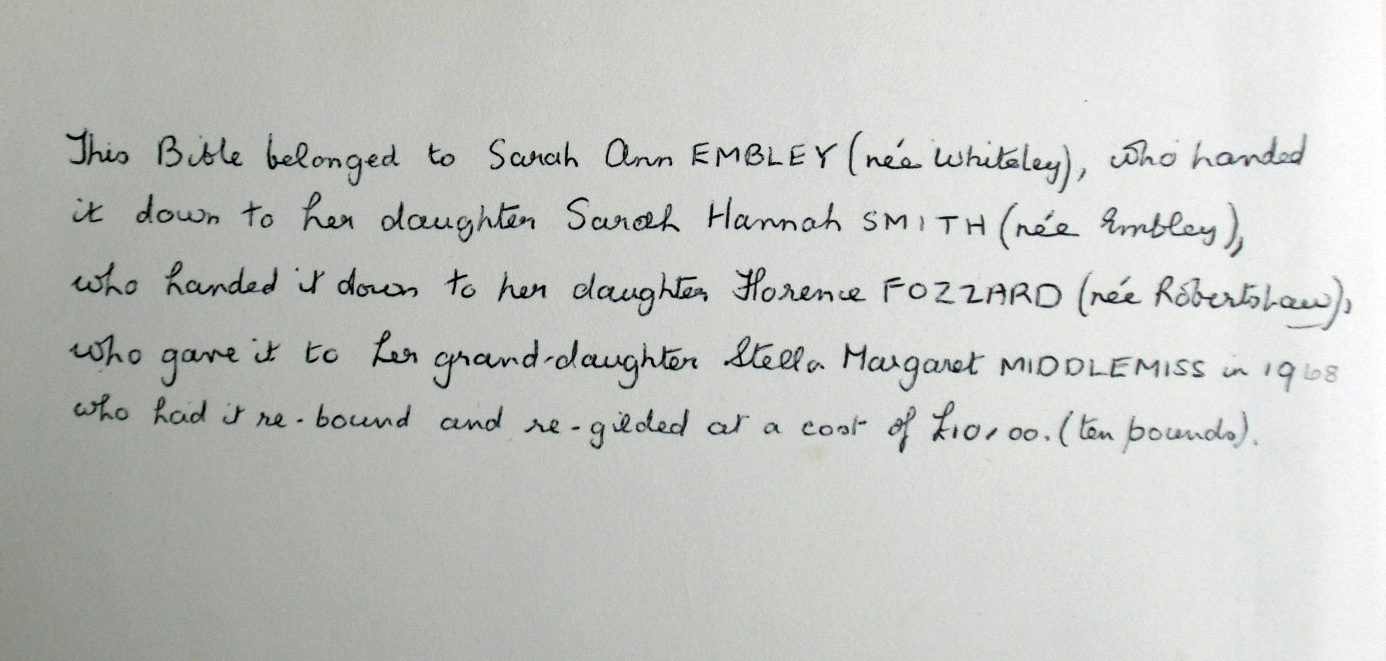 This Bible belonged to Sarah Ann EMBLEY (née Whiteley), who handed
it down to her daughter Sarah Hannah SMITH (née Embley),
who handed it down to her daughter Florence FOZZARD (née Robertshaw),
who gave it to her grand-daughter Stella Margaret MIDDLEMISS in 1968
who had it re-bound and re-gilded at a cost of £10,00. (ten pounds).